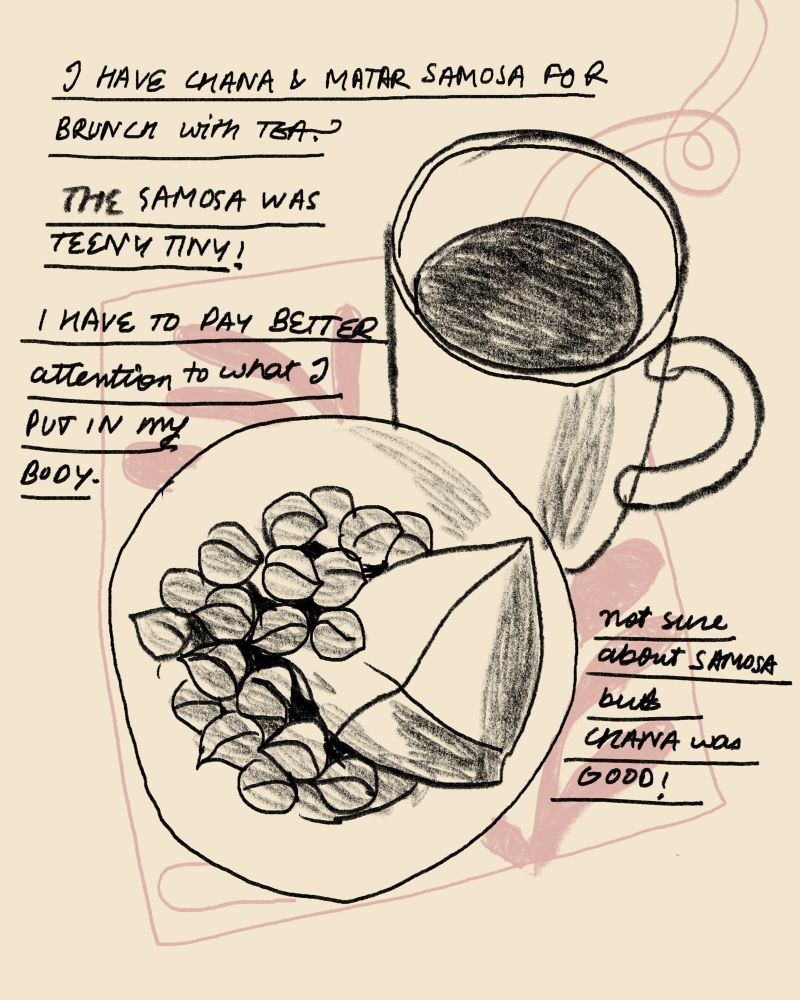 I HAVE CHANA & MATAR SAMOSA FOR
BRUNCH with TEA.
THE SAMOSA WAS
TEENY TINY!
I HAVE TO PAY BETTER
attention to what I
PUT IN my
BODY.
not sure
about SAMOSA
but
CHANA was
GOOD!